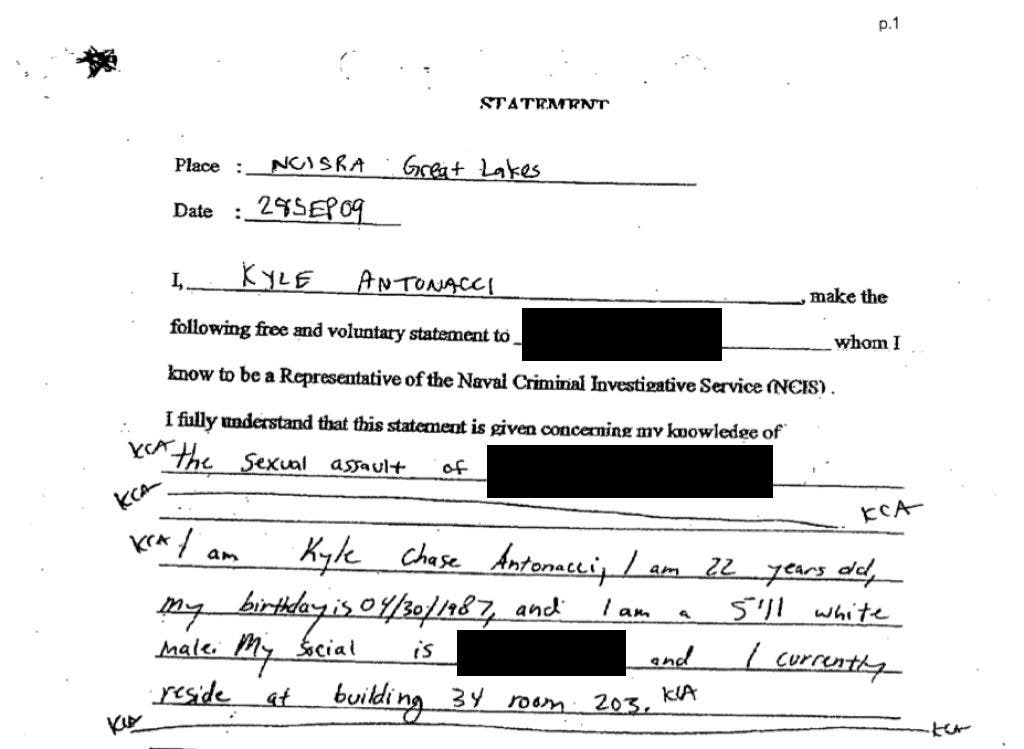 p.1
STATEMENT
Place : NCISRA Great Lakes
Date : 28SEP09
I, KYLE ANTONACCI , make the
following free and voluntary statement to whom I
know to be a Representative of the Naval Criminal Investigative Service (NCIS) .
I fully understand that this statement is given concerning my knowledge of
KCA the sexual assault of
KCA KCA
KCA I am Kyle Chase Antonacci, I am 22 years old,
my birthday is 04/30/1987, and I am a 5'11 white
male. My social is and I currently
reside at building 34 room 203. KCA
KCA KCA